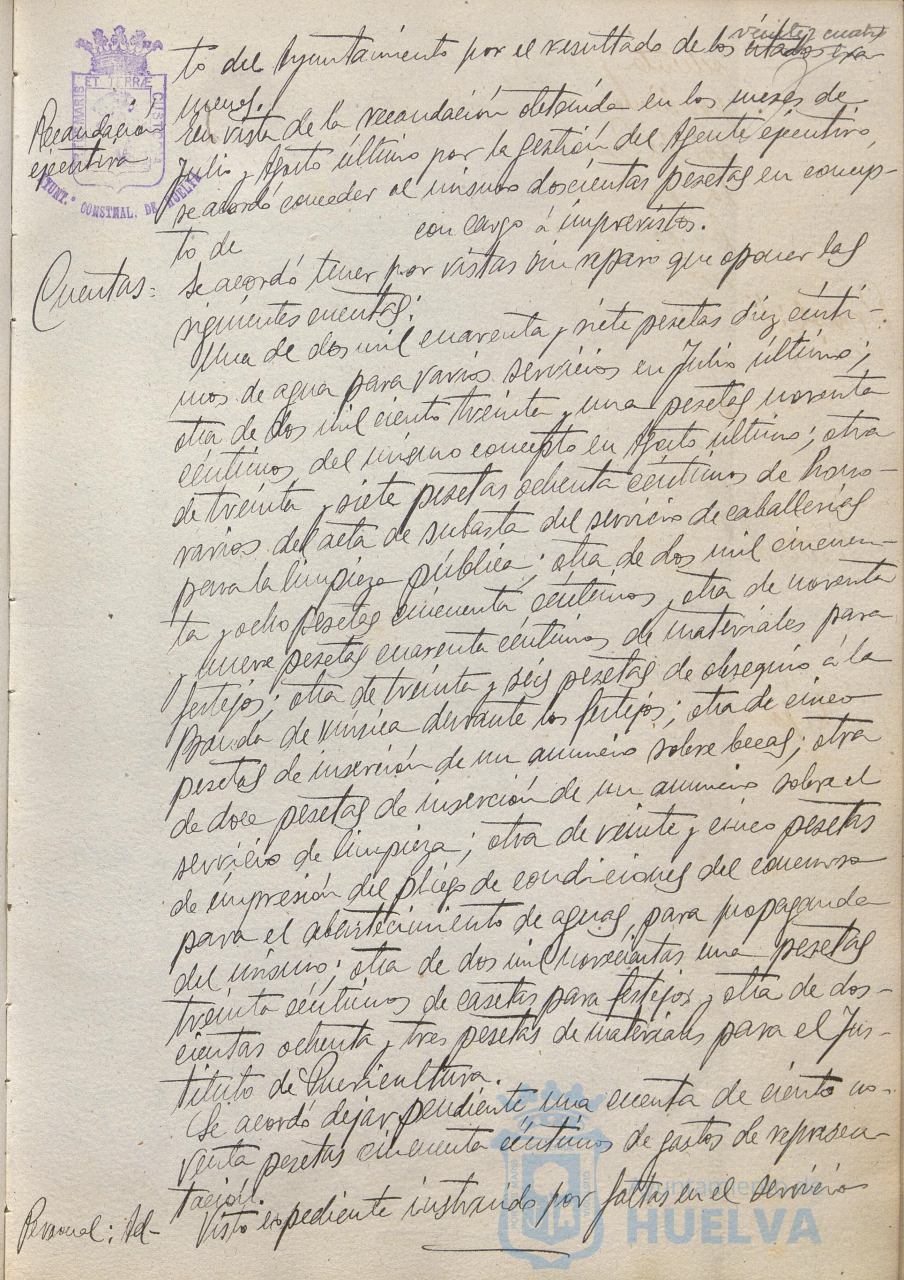 veinte y cuatro
to del Ayuntamiento por el resultado de los citados exa-
menes.
Recaudación
ejecutiva
En vista de la recaudación obtenida en los meses de
Julio y Agosto último por la gestión del Agente ejecutivo,
se acordó conceder al mismo doscientas pesetas en concep-
to de con cargo á imprevistos.
Cuentas=
Se acordó tener por vistas sin reparo que oponer las
siguientes cuentas:
Una de dos mil cuarenta y siete pesetas diez cénti-
mos de agua para varios servicios en Julio último;
otra de dos mil ciento treinta y una pesetas noventa
céntimos del mismo concepto en Agosto último; otra
de treinta y siete pesetas ochenta céntimos de hono-
rarios del acta de subasta del servicio de caballerías
para la limpieza pública; otra de dos mil cincuen-
ta y ocho pesetas cincuenta céntimos y otra de noventa
y nueve pesetas cuarenta céntimos de materiales para
festejos; otra de treinta y séis pesetas de obsequio á la
Banda de música durante los festejos; otra de cinco
pesetas de inserción de un anuncio sobre becas; otra
de doce pesetas de inserción de un anuncio sobre el
servicio de limpieza; otra de veinte y cinco pesetas
de impresión del pliego de condiciones del concurso
para el abastecimiento de aguas, para propaganda
del mismo; otra de dos mil novecientas una pesetas
treinta céntimos de casetas para festejos y otra de dos-
cientas ochenta y tres pesetas de materiales para el Ins-
tituto de Puericultura.
Se acordó dejar pendiente una cuenta de ciento no-
venta pesetas cincuenta céntimos de gastos de represen-
tación.
Personal: Ad-
Visto expediente instruido por faltas en el servicio
ET TERRÆ
MARIS
CUSTODIA
AYUNT.º CONSTNAL. DE HUELVA
Ayuntamiento de
HUELVA